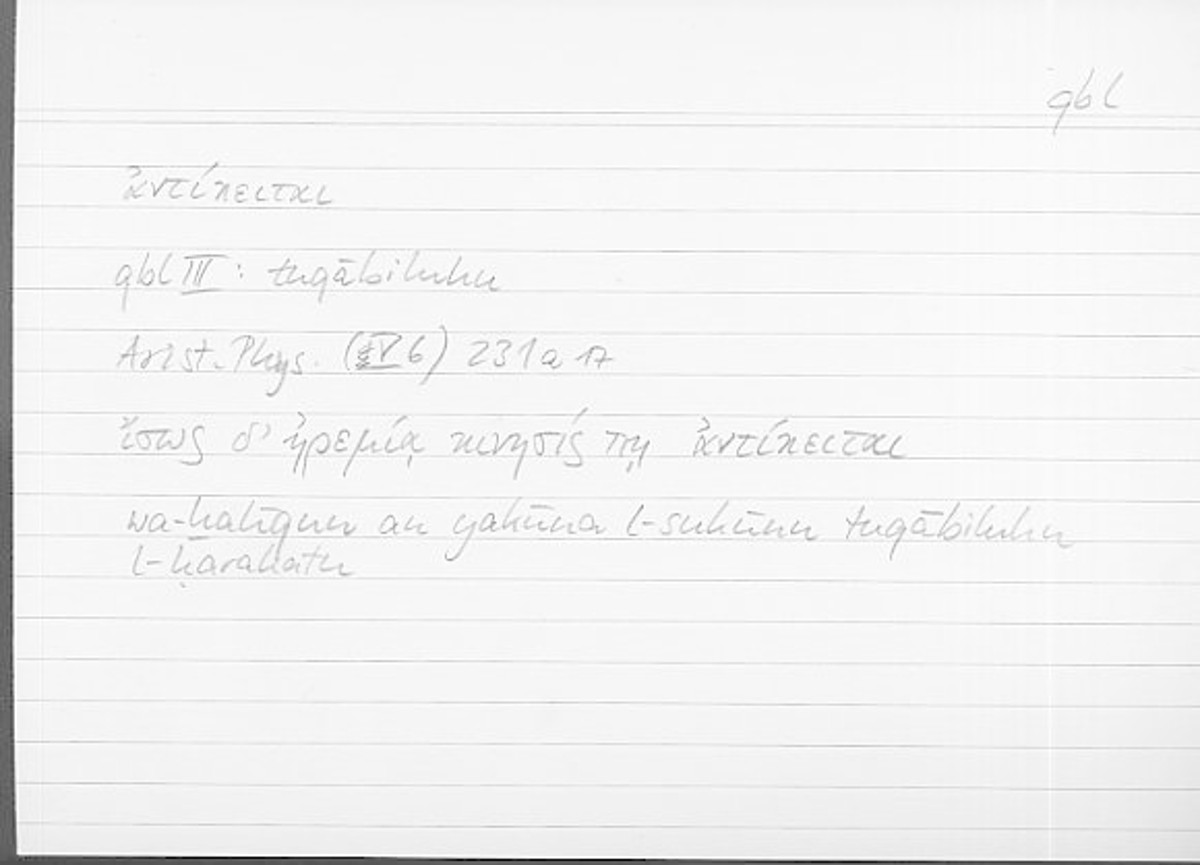 qbl
ἀντίκειται
qbl III : tuqābiluhu
Arist. Phys. (V 6) 231a 17
ἴσως δ' ἠρεμίᾳ κινησίς πῃ ἀντίκειται
wa-ḫalīqun an yakūna l-sukūnu tuqābiluhu
l-ḥarakatu